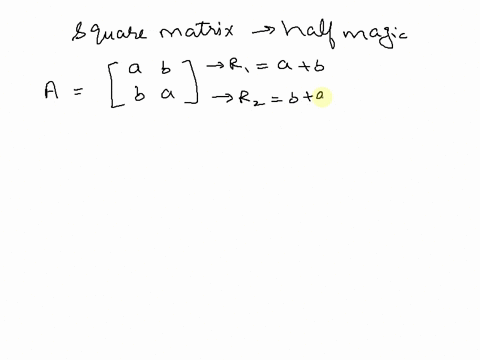 Square matrix → half magic
A = [ a b ] → R₁ = a + b
[ b a ] → R₂ = b + a